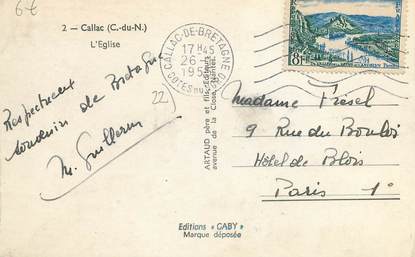 6€
2 - Callac (C.-du-N.)
L'Eglise
CALLAC-DE-BRETAGNE
17H45
26-
195
COTES DU
8F
Respectueux
souvenir de Bretagne
M. Guillerm
22
ARTAUD père et fils, Editeurs
avenue de la Close, Nantes.
Madame Frésel
9 Rue du Bouloi
Hôtel de Blois
Paris 1°
Editions "GABY"
Marque déposée